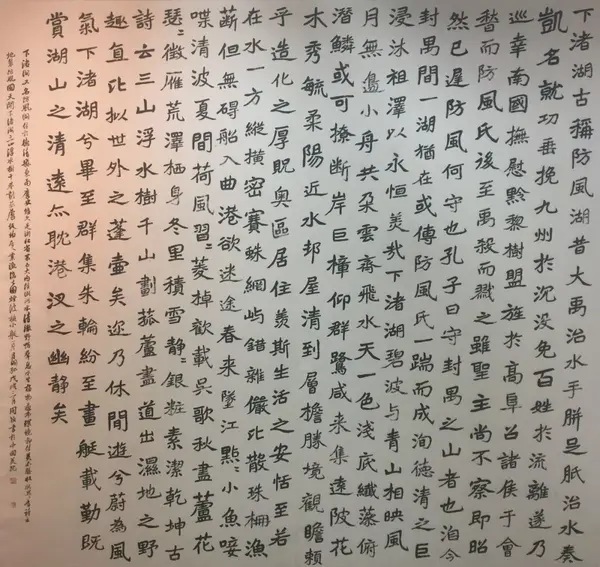 下渚湖古稱防風湖昔大禹治水手胼足胝治水奏
凱名就功垂挽九州於沉没免百姓於流離遂乃
巡幸南國撫慰黔黎樹盟旌於高阜召諸侯于會
稽而防風氏後至禹殺而戮之雖聖主尚不察即昭
然已遲防風何守也孔子曰守封禺之山者也洎今
封禺間一湖猶在或傳防風氏一踹而成洵德清之巨
浸沐祖澤以永恒美哉下渚湖碧波与青山相映風
月無邊小舟共朵雲齊飛水天一色淺底纖藻俯
潛鱗或可撩斷岸巨樟仰群鷺咸来集遠陂花
木秀毓柔陽近水邦屋清到層檐勝境觀瞻賴
乎造化之厚貺奥區居住羨斯生活之安恬至若
在水一方縱横密賽蛛網屿錯雜儼比散珠栅漁
蘄但無碍船入曲港欲迷途春来墜江點：小魚唼
喋清波夏間荷風習菱棹歡載吳歌秋盡蘆花
瑟：徵雁荒澤栖身冬里積雪靜：銀粧素潔乾坤古
詩云三山浮水樹千山劃菰蘆盡道出濕地之野
趣直比拟世外之蓬壷矣迩乃休閒逰兮蔚為風
氣下渚湖兮畢至群集朱輪紛至畫艇載勤既
賞湖山之清遠亦耽港汊之幽静矣